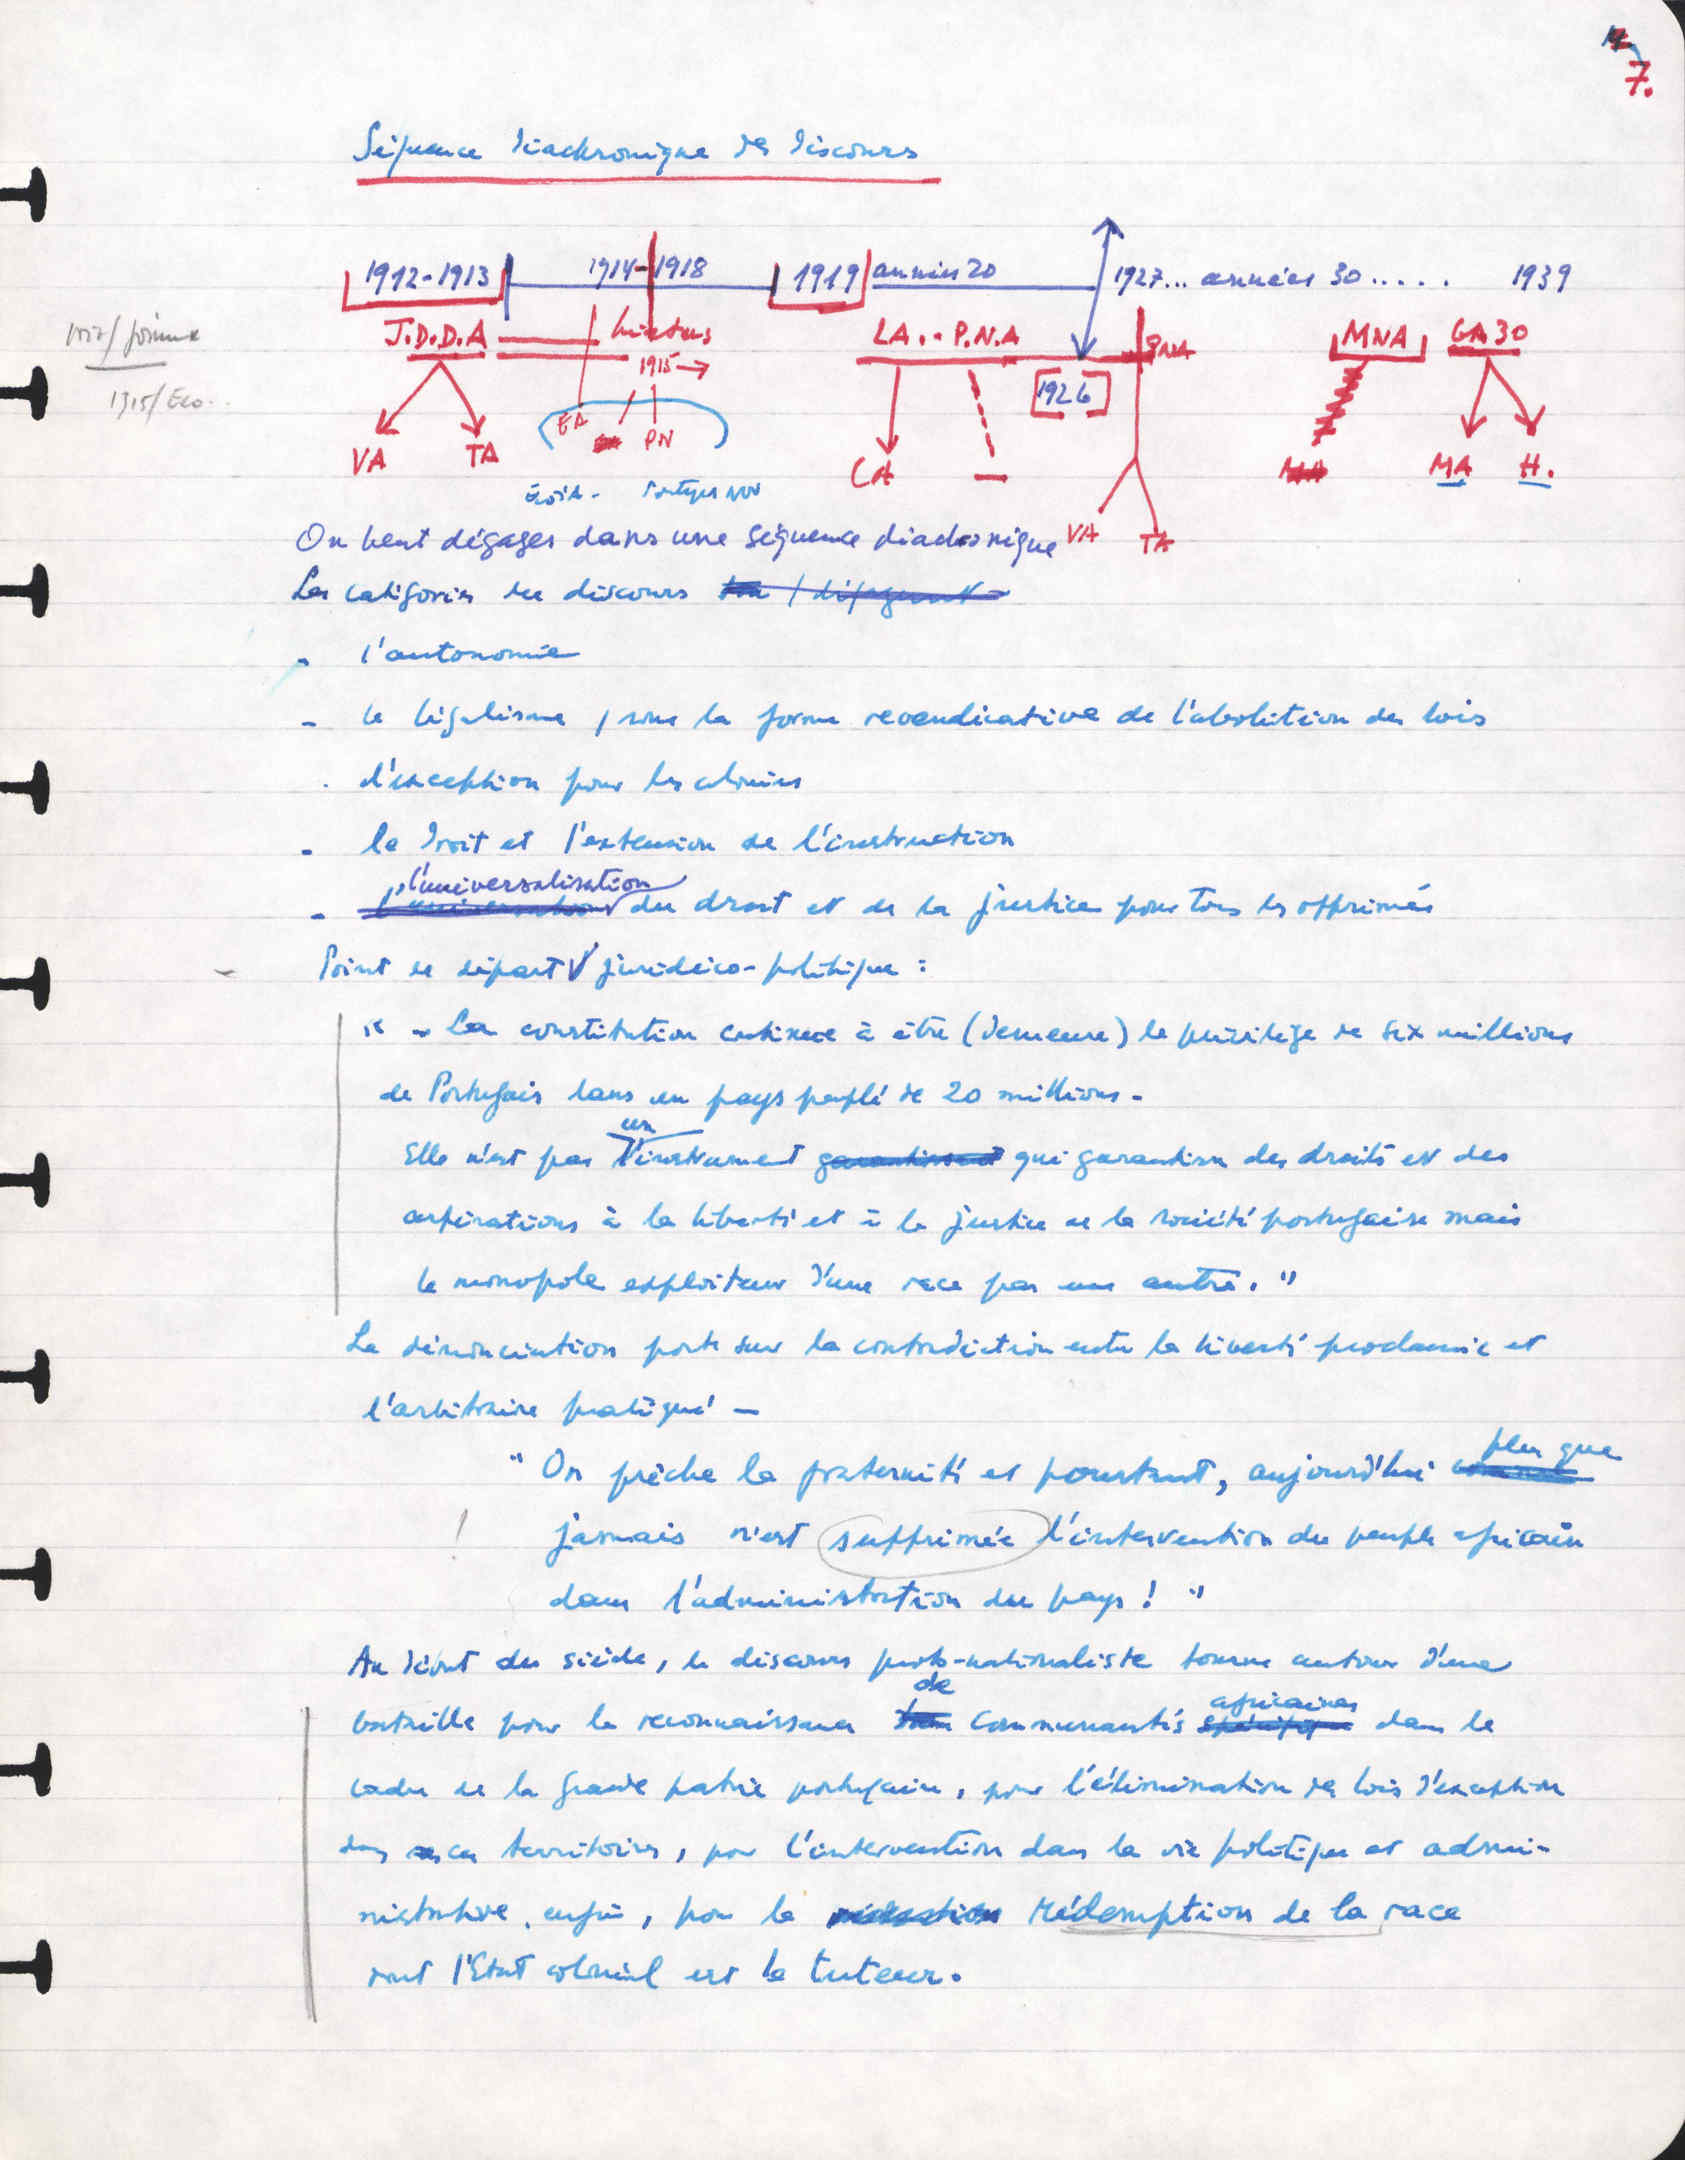 7.
Séquence diachronique des discours
1912-1913 1914-1918 1919 années 20 1927... années 30..... 1939
J.D.D.A LA.-P.N.A PNA MNA GA30
1915→
[1926]
EA PN
VA TA CA MA H.
VA TA
On peut dégager dans une séquence diachronique
Les catégories du discours
- l'autonomie
- le légalisme, sous la forme revendicative de l'abolition des lois
d'exception pour les colonies
- le droit et l'extension de l'instruction
l'universalisation
- du droit et de la justice pour tous les opprimés
Point de départ juridico-politique :
"- La constitution continue à être (demeure) le privilège de six millions
de Portugais dans un pays peuplé de 20 millions.
un
Elle n'est pas l'instrument qui garantisse des droits et des
aspirations à la liberté et à la justice de la société portugaise mais
le monopole exploiteur d'une race par une autre."
La dénonciation porte sur la contradiction entre la liberté proclamée et
l'arbitraire pratiqué -
plus que
"On prêche la fraternité et pourtant, aujourd'hui
jamais n'est supprimée l'intervention du peuple africain
dans l'administration du pays ! "
Au début du siècle, le discours proto-nationaliste tourne autour d'une
de africaines
bataille pour la reconnaissance communautés dans le
cadre de la grande patrie portugaise, pour l'élimination des lois d'exception
dans ces territoires, par l'intervention dans la vie politique et admi-
nistrative, enfin, pour la rédemption de la race
dont l'Etat colonial est le tuteur.